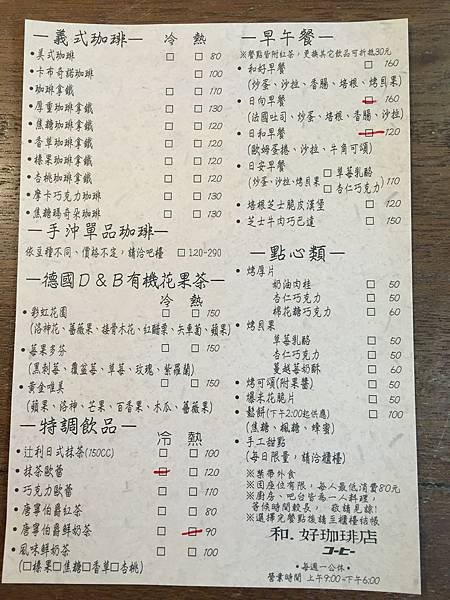 —義式珈琲— 冷 熱
•美式珈琲 □ □ 80
•卡布奇諾珈琲 □ 100
•珈琲拿鐵 □ □ 110
•厚重珈琲拿鐵 □ □ 110
•焦糖珈琲拿鐵 □ □ 120
•香草珈琲拿鐵 □ □ 120
•榛果珈琲拿鐵 □ □ 120
•杏桃珈琲拿鐵 □ □ 120
•摩卡巧克力珈琲 □ □ 150
•焦糖瑪奇朵珈琲 □ □ 150
—手沖單品珈琲—
依豆種不同、價格不定，請洽吧檯 □120-290
—德國D&B有機花果茶—
冷 熱
•彩虹花園 □ □ 150
(洛神花、薔薇果、接骨木花、紅醋栗、矢車菊、蘋果)
•莓果多芬 □ □ 150
(黑刺莓、覆盆莓、草莓、玫瑰、紫羅蘭)
•黃金唯美 □ □ 150
(蘋果、洛神、芒果、百香果、木瓜、薔薇果)
—特調飲品— 冷 熱
•辻利日式抹茶(150CC) □ 100
•抹茶歐蕾 □ □ 120
•巧克力歐蕾 □ □ 110
•唐寧伯爵紅茶 □ □ 80
•唐寧伯爵鮮奶茶 □ □ 90
•風味鮮奶茶 □ □ 100
(□榛果□焦糖□香草□杏桃)
—早午餐—
※餐點皆附紅茶，更換其它飲品可折抵30元
•和好早餐 □ 160
(炒蛋、沙拉、香腸、培根、烤貝果)
•日向早餐 □ 160
(法國吐司、炒蛋、培根、香腸、沙拉)
•日和早餐 □ 120
(歐姆蛋捲、沙拉、牛角可頌)
•日安早餐 □草莓乳酪
(炒蛋、沙拉、烤貝果 □杏仁巧克力) 110
•培根芝士脆皮漢堡 □ 120
•芝士牛肉巧巴達 □ 150
—點心類—
•烤厚片
奶油肉桂 □ 50
杏仁巧克力 □ 50
棉花糖巧克力 □ 60
•烤貝果
草莓乳酪 □ 50
杏仁巧克力 □ 50
蔓越莓奶酥 □ 60
•烤可頌(附果醬) □ 50
•爆米花脆片 □ 50
•鬆餅(下午2:00起供應) □ 100
(焦糖、楓糖、蜂蜜)
•手工甜點
(每日限量，請洽櫃檯)
※禁帶外食
※因座位有限，每人最低消費80元
※廚房、吧台皆為一人料理，
等候時間較長，敬請見諒!
※選擇完餐點後請至櫃檯結帳
和.好珈琲店
コーヒー
•每週一公休•
營業時間 上午9:00-下午6:00